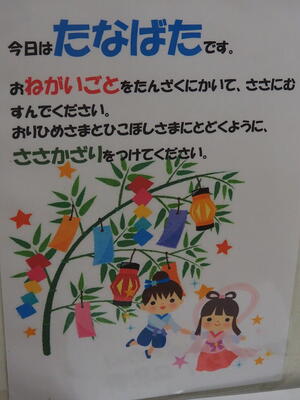 今日はたなばたです。
おねがいごとをたんざくにかいて、ささにむ
すんでください。
おりひめさまとひこぼしさまにとどくように、
ささかざりをつけてください。